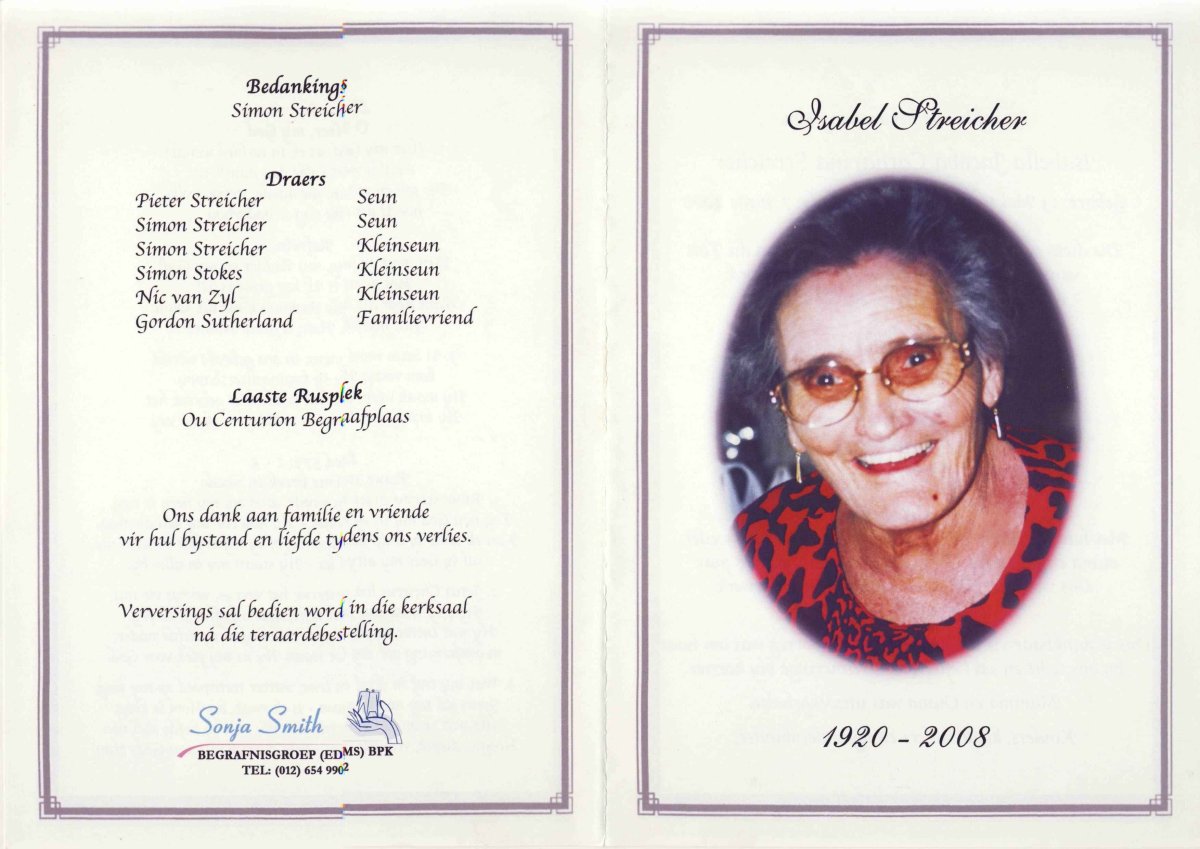 Bedankings
Simon Streicher
Draers
Pieter Streicher Seun
Simon Streicher Seun
Simon Streicher Kleinseun
Simon Stokes Kleinseun
Nic van Zyl Kleinseun
Gordon Sutherland Familievriend
Laaste Rusplek
Ou Centurion Begraafplaas
Ons dank aan familie en vriende
vir hul bystand en liefde tydens ons verlies.
Verversings sal bedien word in die kerksaal
ná die teraardebestelling.
Sonja Smith
BEGRAFNISGROEP (EDMS) BPK
TEL: (012) 654 9902
Isabel Streicher
1920 - 2008